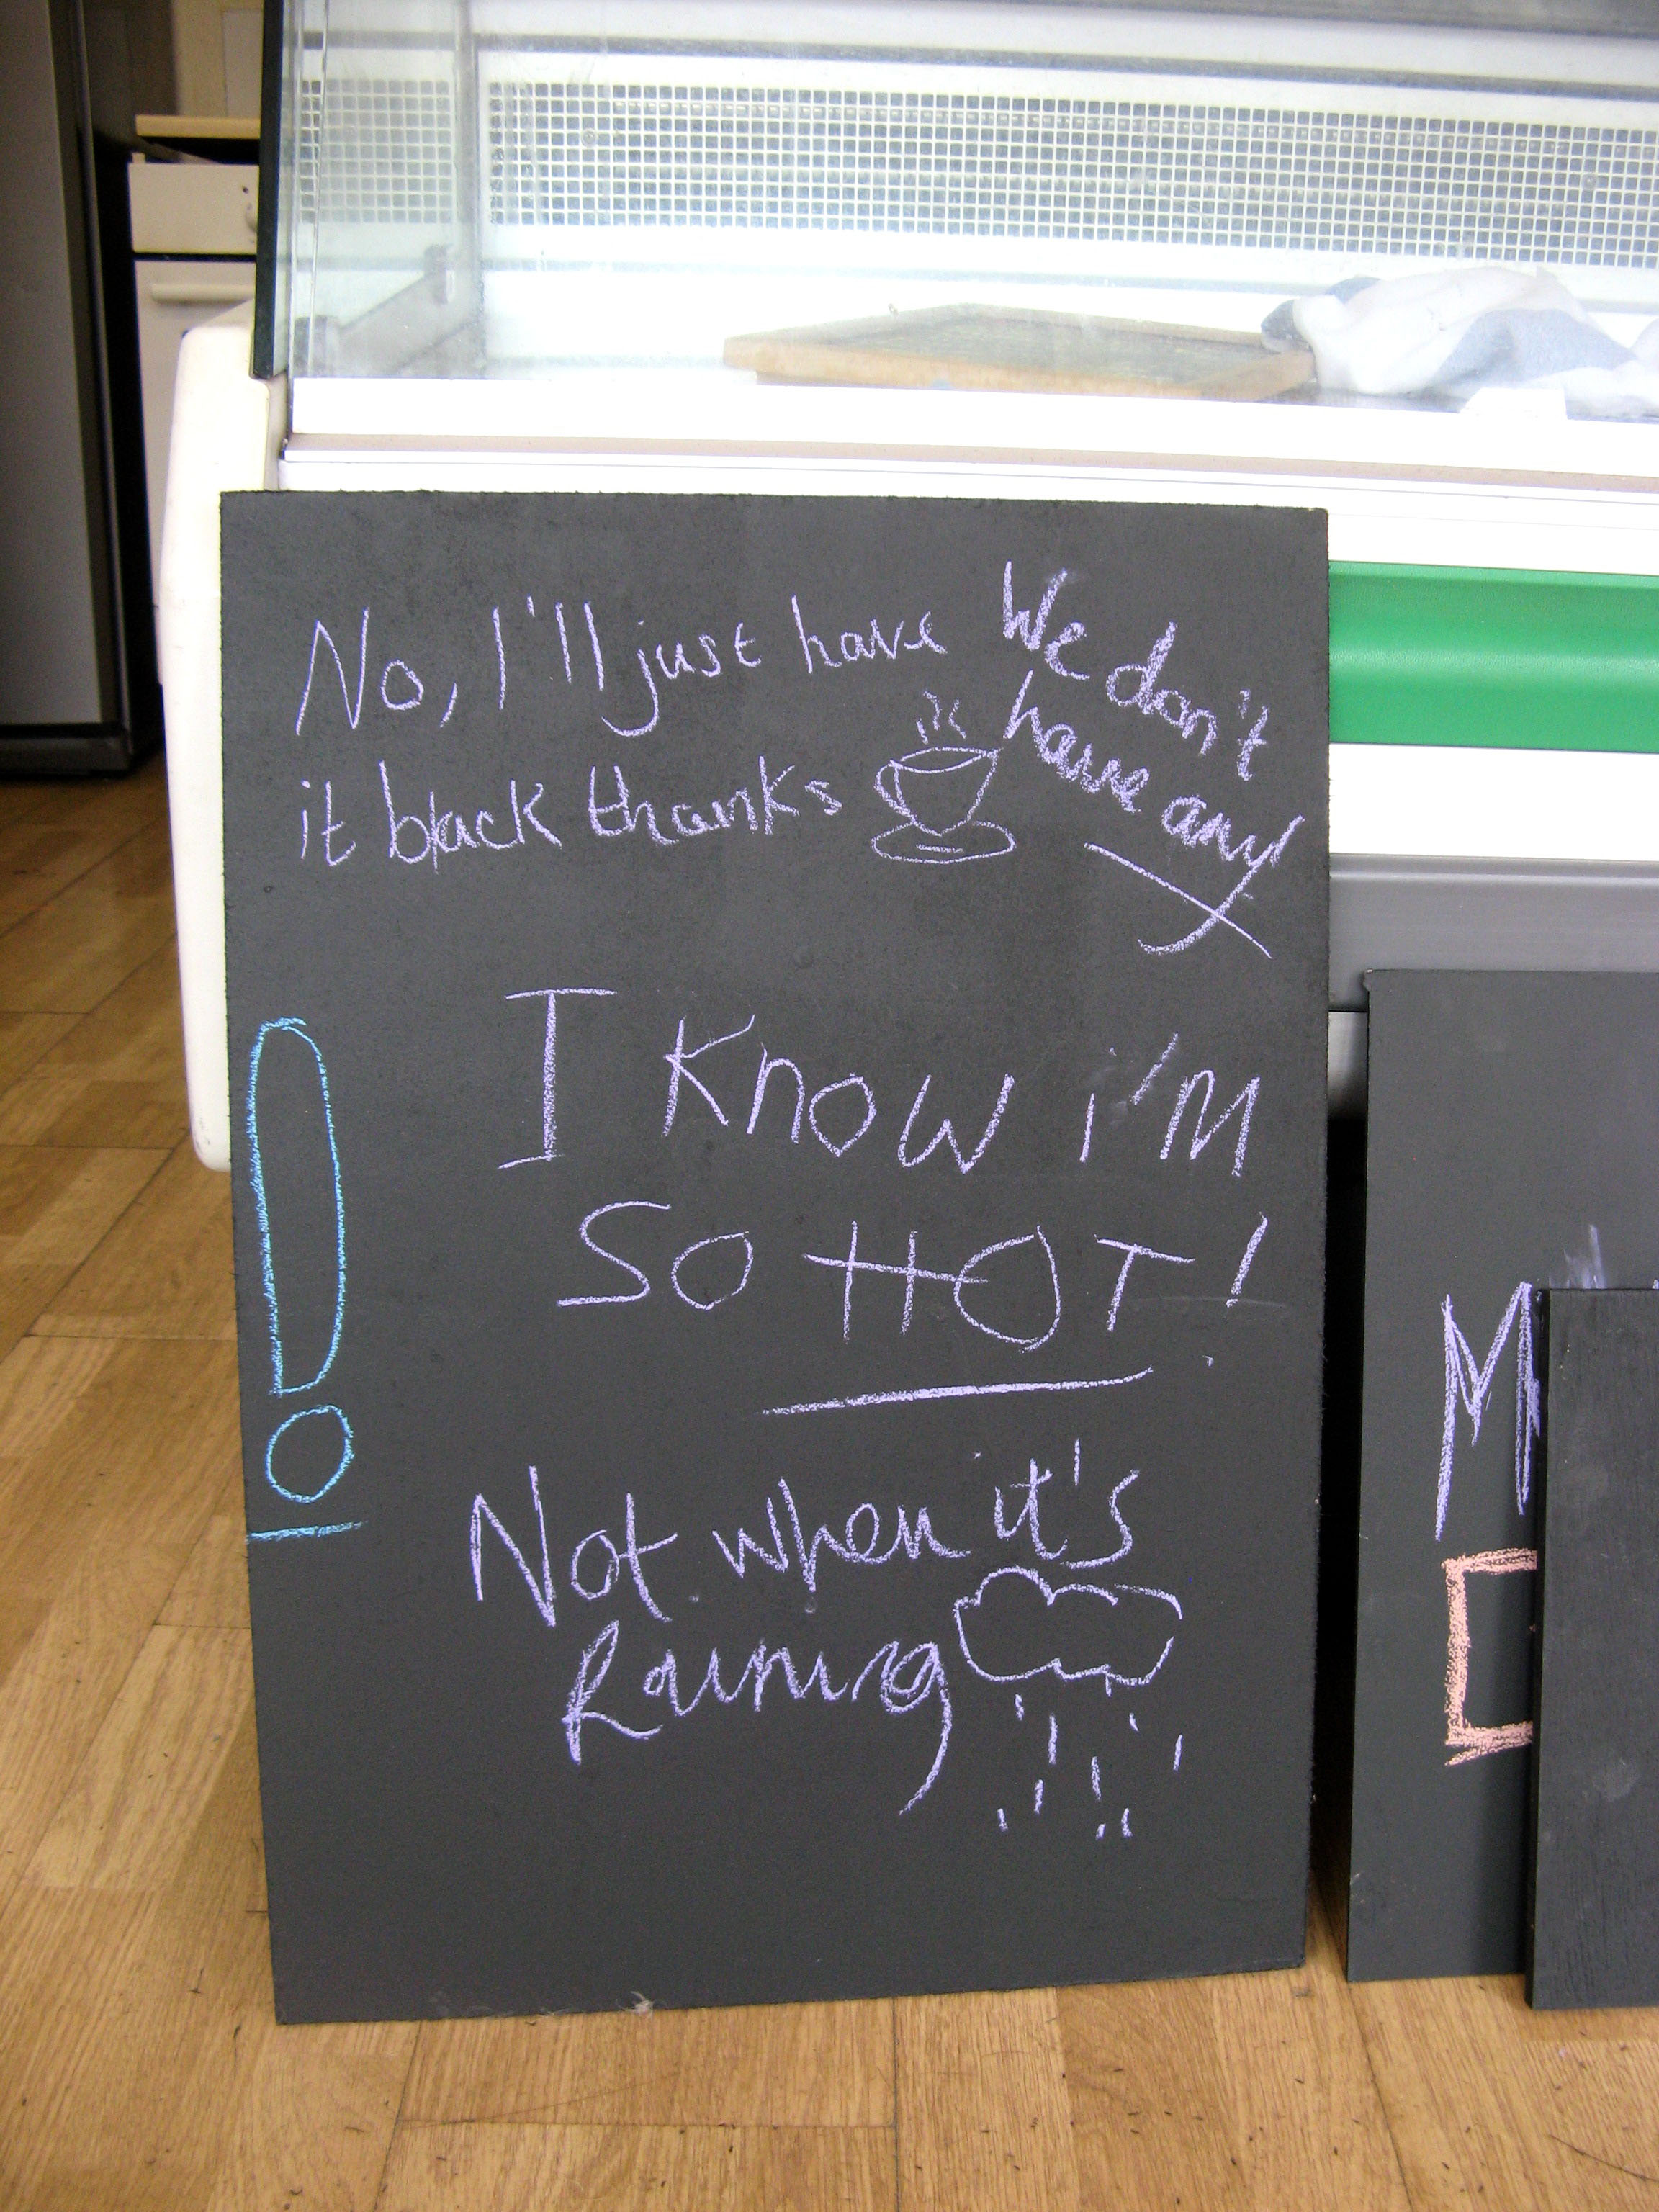 No, I'll just have
it black thanks
We don't
have any!
I KnOW i'M
SO HOT!
Not when it's
Raining
M